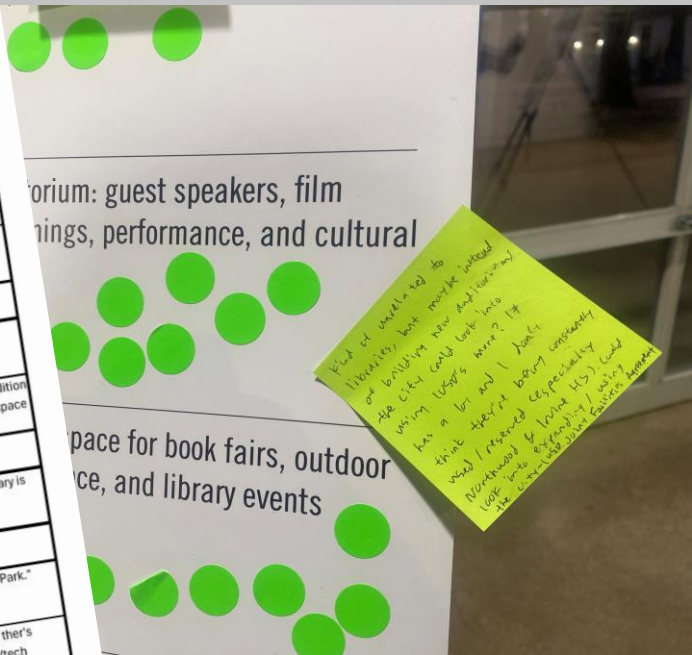 orium: guest speakers, film
nings, performance, and cultural
pace for book fairs, outdoor
ce, and library events
Kind of unrelated to
libraries, but maybe instead
of building new auditoriums
the city could look into
using IUSD's more? It
has a lot and I don't
think they're being constantly
used/reserved (especially
Northwood & Irvine HS). Could
look into expanding/using
the city-IUSD Joint Facilities Agreement
dition
pace
ary is
Park."
ther's
/tech